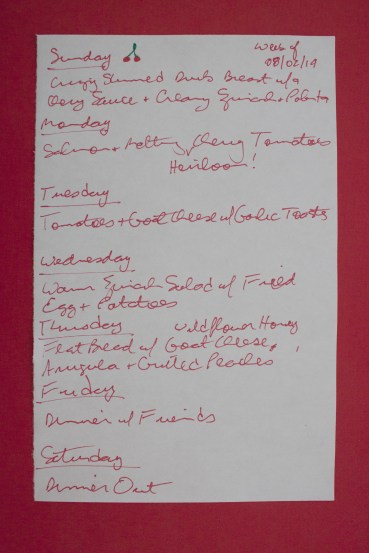 Sunday
Week of
08/02/19
Crispy Skinned Duck Breast w/a
Cherry Sauce + Creamy Spinach + Polenta
Monday
Salmon + Melting Cherry Tomatoes
Heirloom!
Tuesday
Tomatoes + Goat Cheese w/ Garlic Toasts
Wednesday
Warm Spinach Salad w/ Fried
Egg + Potatoes
Thursday
Wildflower Honey
Flat Bread w/ Goat Cheese,
Arugula + Grilled Peaches
Friday
Dinner w/ Friends
Saturday
Dinner Out